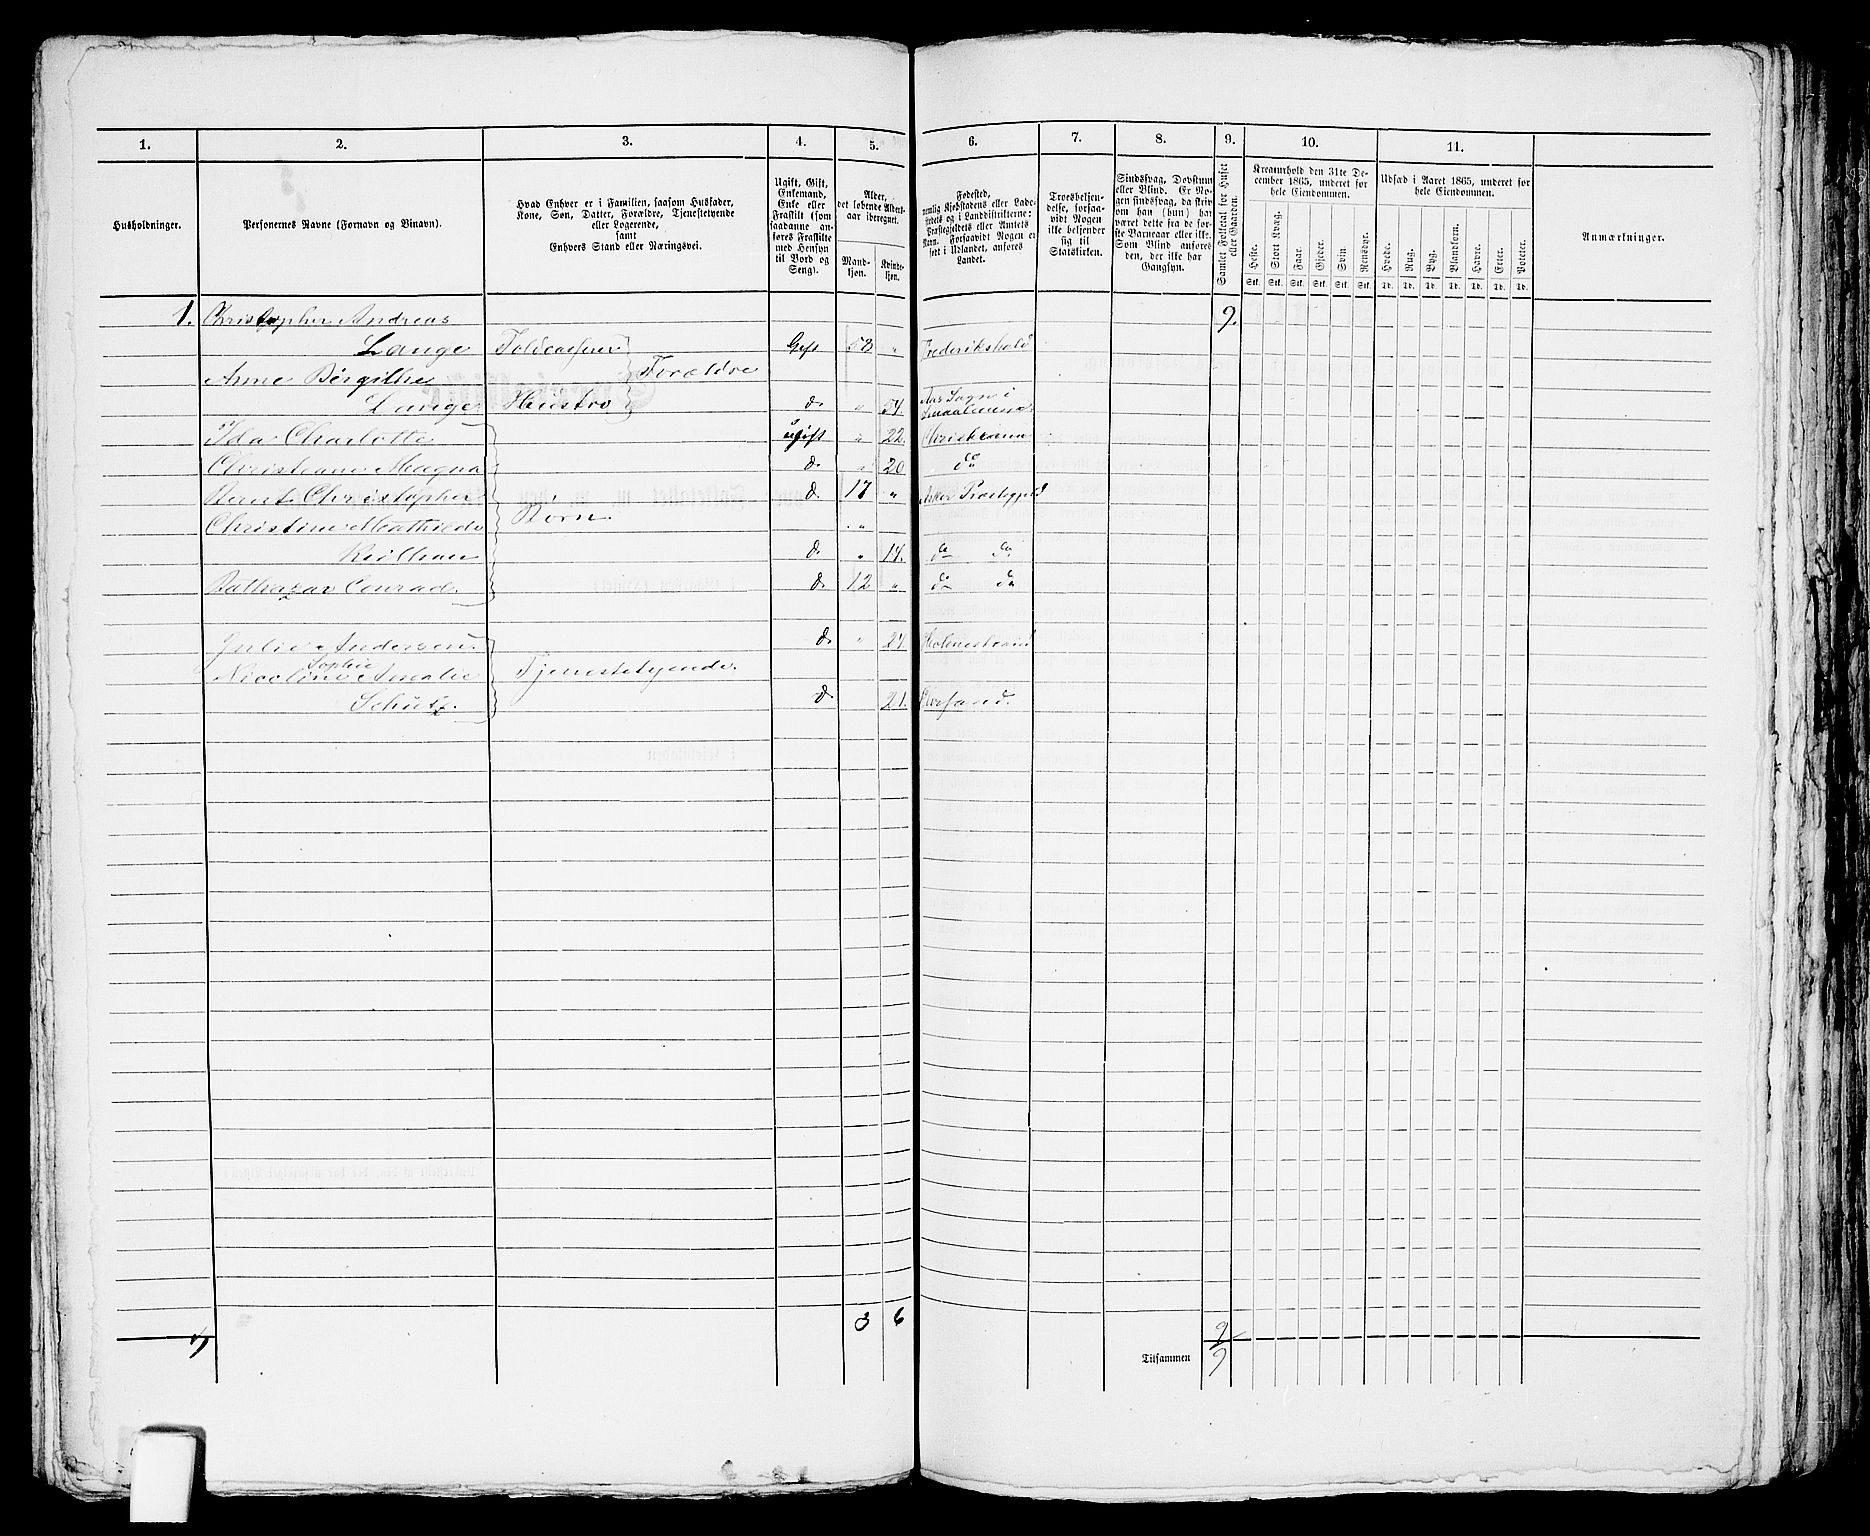 1. 2. 3. 4. 5. 6. 7. 8. 9. 10. 11.
Husholdninger.
Personernes Navne (Fornavn og Binavn).
Hvad Enhver er i Familien, saasom Husfader,
Kone, Søn, Datter, Forældre, Tjenestetyende
eller Logerende,
samt
Enhvers Stand eller Næringsvei.
Ugift, Gift,
Enkemand,
Enke eller
Fraskilt (som
saadanne an-
føres Fraskilte
med Hensyn
til Bord og
Seng).
Alder,
det løbende Alders-
aar iberegnet.
Mand-
kjøn.
Kvinde-
kjøn.
Fødested,
nemlig Kjøbstadens eller Lade-
stedets og i Landdistrikterne:
Præstegjeldets eller Amtets
Navn. Forsaavidt Nogen er
født i Udlandet, anføres
Landet.
Troesbekjen-
delse, forsaa-
vidt Nogen
ikke bekjender
sig til
Statskirken.
Sindssvag, Døvstum
eller Blind. Er No-
gen sindssvag, da skriv
om han (hun) har
været dette fra de før-
ste Barneaar eller ikke.
Som Blind anføres
den, der ikke har
Gangsyn.
Samlet Folketal for Huset
eller Gaarden.
Kreaturhold den 31te De-
cember 1865, underet for
hele Eiendommen.
Heste. Stort Kvæg. Faar. Gjeder. Svin. Rensdyr.
Stk. Stk. Stk. Stk. Stk. Stk.
Udsæd i Aaret 1865, underet for
hele Eiendommen.
Hvede. Rug. Byg. Blandkorn. Havre. Erter. Poteter.
Td. Td. Td. Td. Td. Td. Td.
Anmærkninger.
1. Christopher Andreas 9.
Lange Toldcasserer Gift 58 " Frederikshald
Anne Birgithe Forældre
Lange Hustro do " 54. Aas Sogn i
Smaalenene
Ida Charlotte ugift " 22. Christiania
Christiane Magna do " 20 do
Bernt Christopher do 17 " Asker Præstegjeld
Christine Mathilde Børn "
Keilhau do " 14. do do
Balthazar Conrad. do 12 " do do
Julie Andersen do " 24. Holmestrand
Sophie
Nicoline Amalie Tjenestetyende
Schütz. do 21.
3 6 9
Tilsammen 9